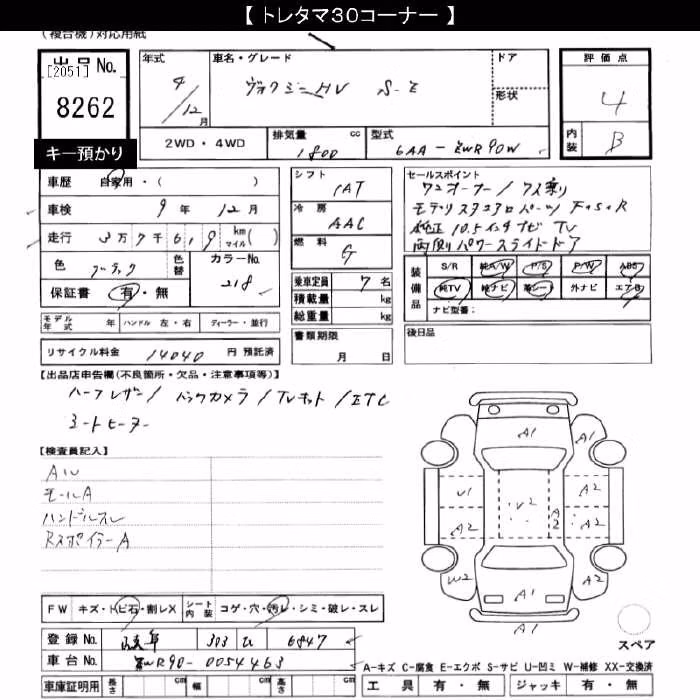 【 トレタマ30コーナー 】
(複合機)対応用紙
出品No.
[2051]
8262
キー預かり
年式 4/12月
車名・グレード ヴォクシー HV S-Z
ドア
形状
評価点 4
内装 B
2WD・4WD
排気量 1800 cc
型式 6AA-ZWR90W
車歴 自家用・( )
車検 9年 12月
走行 3万7千61,9 km マイル( )
色 ブラック
色替
カラーNo. 218
保証書 有・無
シフト IAT
冷房 AAC
燃料 G
乗車定員 7名
積載量 kg
総重量 kg
書類期限
月 日
セールスポイント
ワンオーナー/禁煙
モデリスタエアロパーツ F+S+R
純正10.5インチナビ TV
両側パワースライドドア
装備品
S/R 純A/W P/S P/W ABS
純TV 純ナビ 革シート 外ナビ エアB
ナビ型番:
モデル年式 年 ハンドル 左・右 ディーラー・並行
後日品
リサイクル料金 14040 円 預託済
【出品店申告欄(不良箇所・欠品・注意事項等)】
ハーフレザー/バックカメラ/TVキット/ETC
シートヒーター
【検査員記入】
AW
モールA
ハンドルスレ
RスポイラーA
A1
A1
U1
U2
A2
A2
A2
A2
W2
A1
A2
A1
スペア
FW キズ・トビ石・割レX
シート内装 コゲ・穴・汚レ・シミ・破レ・スレ
登録No. 303 ひ 6847
車台No. ZWR90-0054463
A-キズ C-腐食 E-エクボ S-サビ U-凹ミ W-補修 XX-交換済
車庫証明用 長さ cm 幅 cm 高さ cm
工具 有・無 ジャッキ 有・無